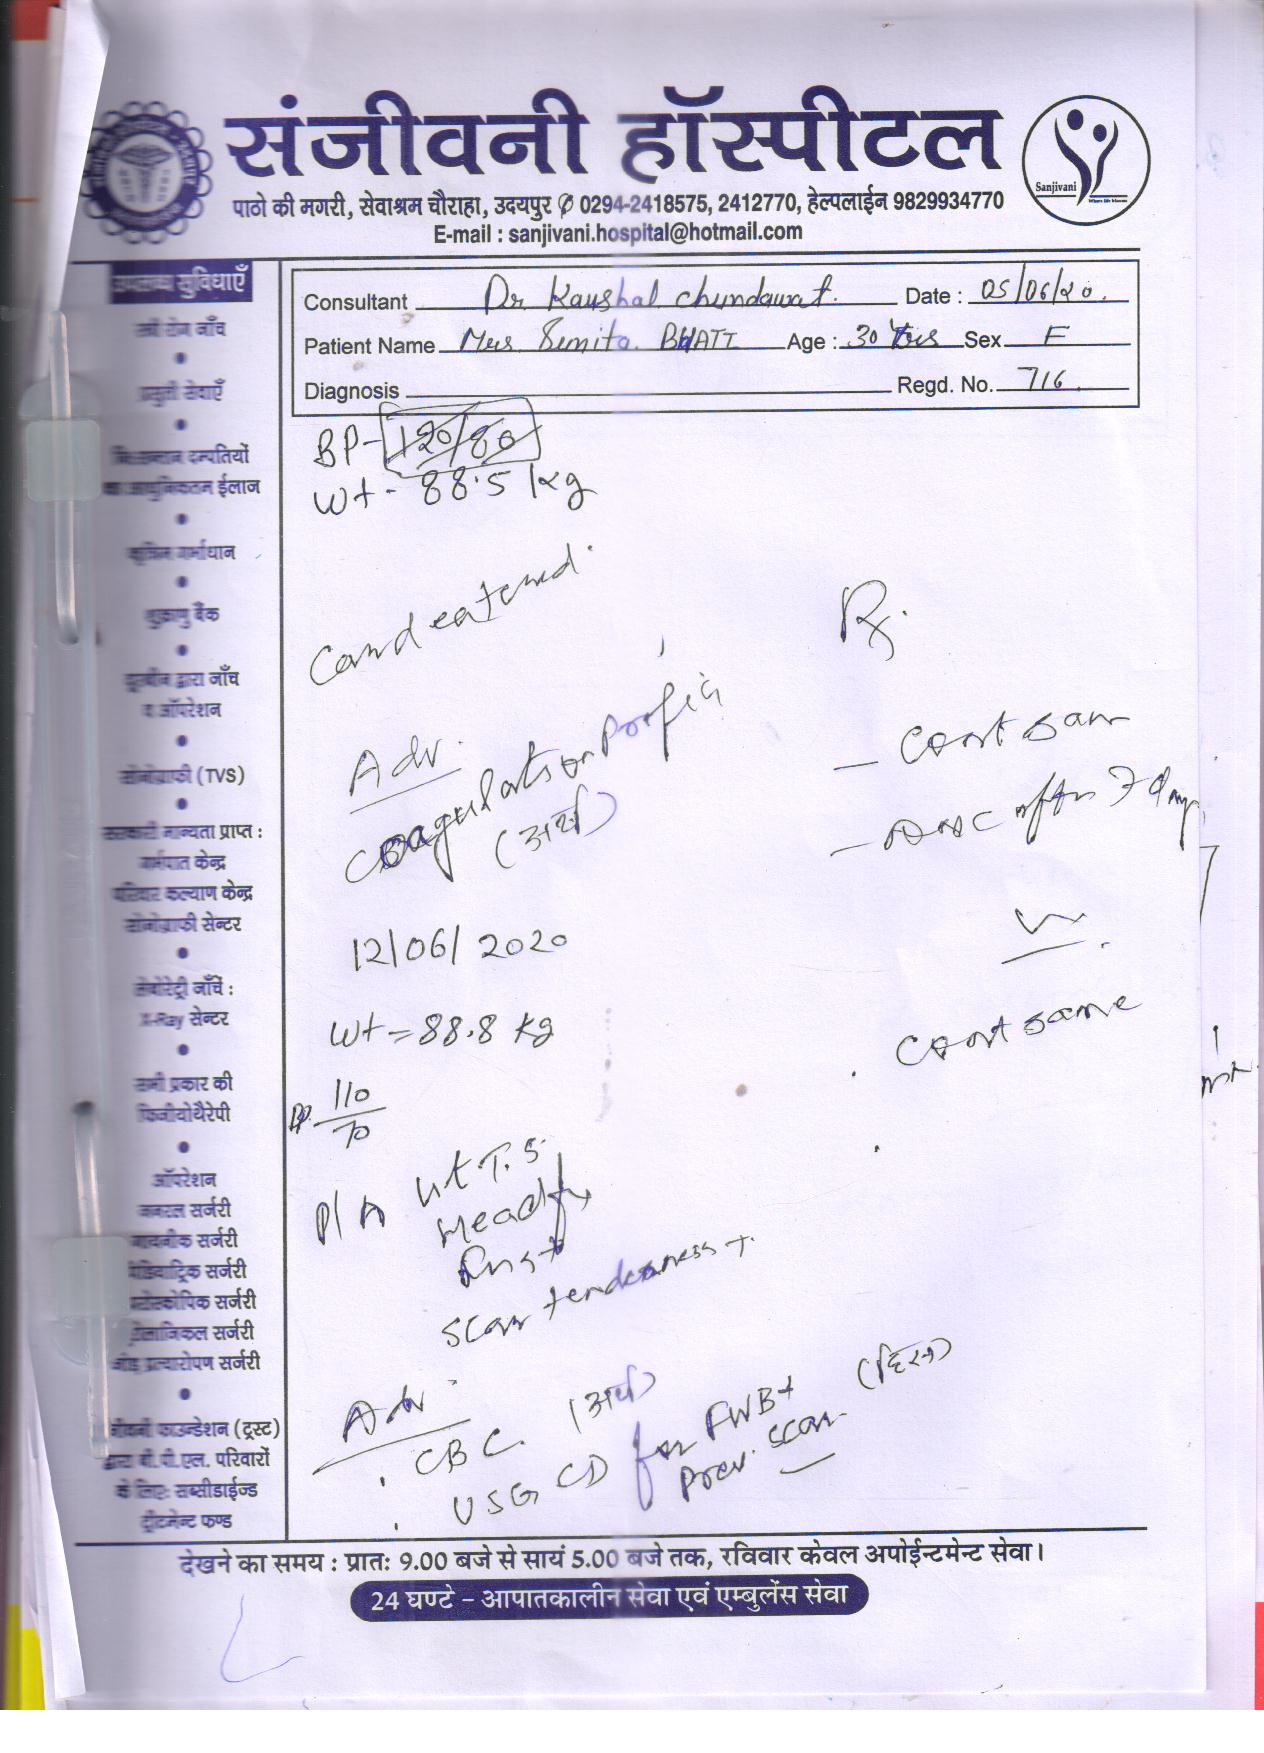 संजीवनी हॉस्पीटल
पाठो की मगरी, सेवाश्रम चौराहा, उदयपुर ✆ 0294-2418575, 2412770, हेल्पलाईन 9829934770
E-mail : sanjivani.hospital@hotmail.com
Sanjivani
उपलब्ध सुविधाएँ
स्त्री रोग जाँच
प्रसुती सेवाएँ
नि:सन्तान दम्पतियों
का आधुनिकतम ईलाज
कृत्रिम गर्भाधान
शुक्राणु बैंक
दूरबीन द्वारा जाँच
व ऑपरेशन
सोनोग्राफी (TVS)
सरकारी मान्यता प्राप्त :
गर्भपात केन्द्र
परिवार कल्याण केन्द्र
सोनोग्राफी सेन्टर
लेबोरेट्री जाँचें :
X-Ray सेन्टर
सभी प्रकार की
फिजीयोथैरेपी
ऑपरेशन
जनरल सर्जरी
गायनीक सर्जरी
पेडियाट्रिक सर्जरी
सर्जरी
सर्जरी
जोड़ प्रत्यारोपण सर्जरी
फाउन्डेशन (ट्रस्ट)
द्वारा बी.पी.एल. परिवारों
के लिए: सब्सीडाईज्ड
ट्रीटमेन्ट फण्ड
Consultant Dr Kaushal Chundawat. Date : 05/06/20.
Patient Name Mrs BHATI Age : 30 Sex F
Diagnosis Regd. No. 716
BP- 120/80
Wt - 88.5 kg
Rx.
Adv.
coagulation
- cont sam
- ANC after 7 day
12/06/2020
Wt = 88.8 kg
cont same
BP. 110/70
P/A Ut T.S
Head
scar tenderness +
Adv
CBC
USG CD for FWB +
prev. scar
देखने का समय : प्रातः 9.00 बजे से सायं 5.00 बजे तक, रविवार केवल अपोईन्टमेन्ट सेवा।
24 घण्टे – आपातकालीन सेवा एवं एम्बुलेंस सेवा